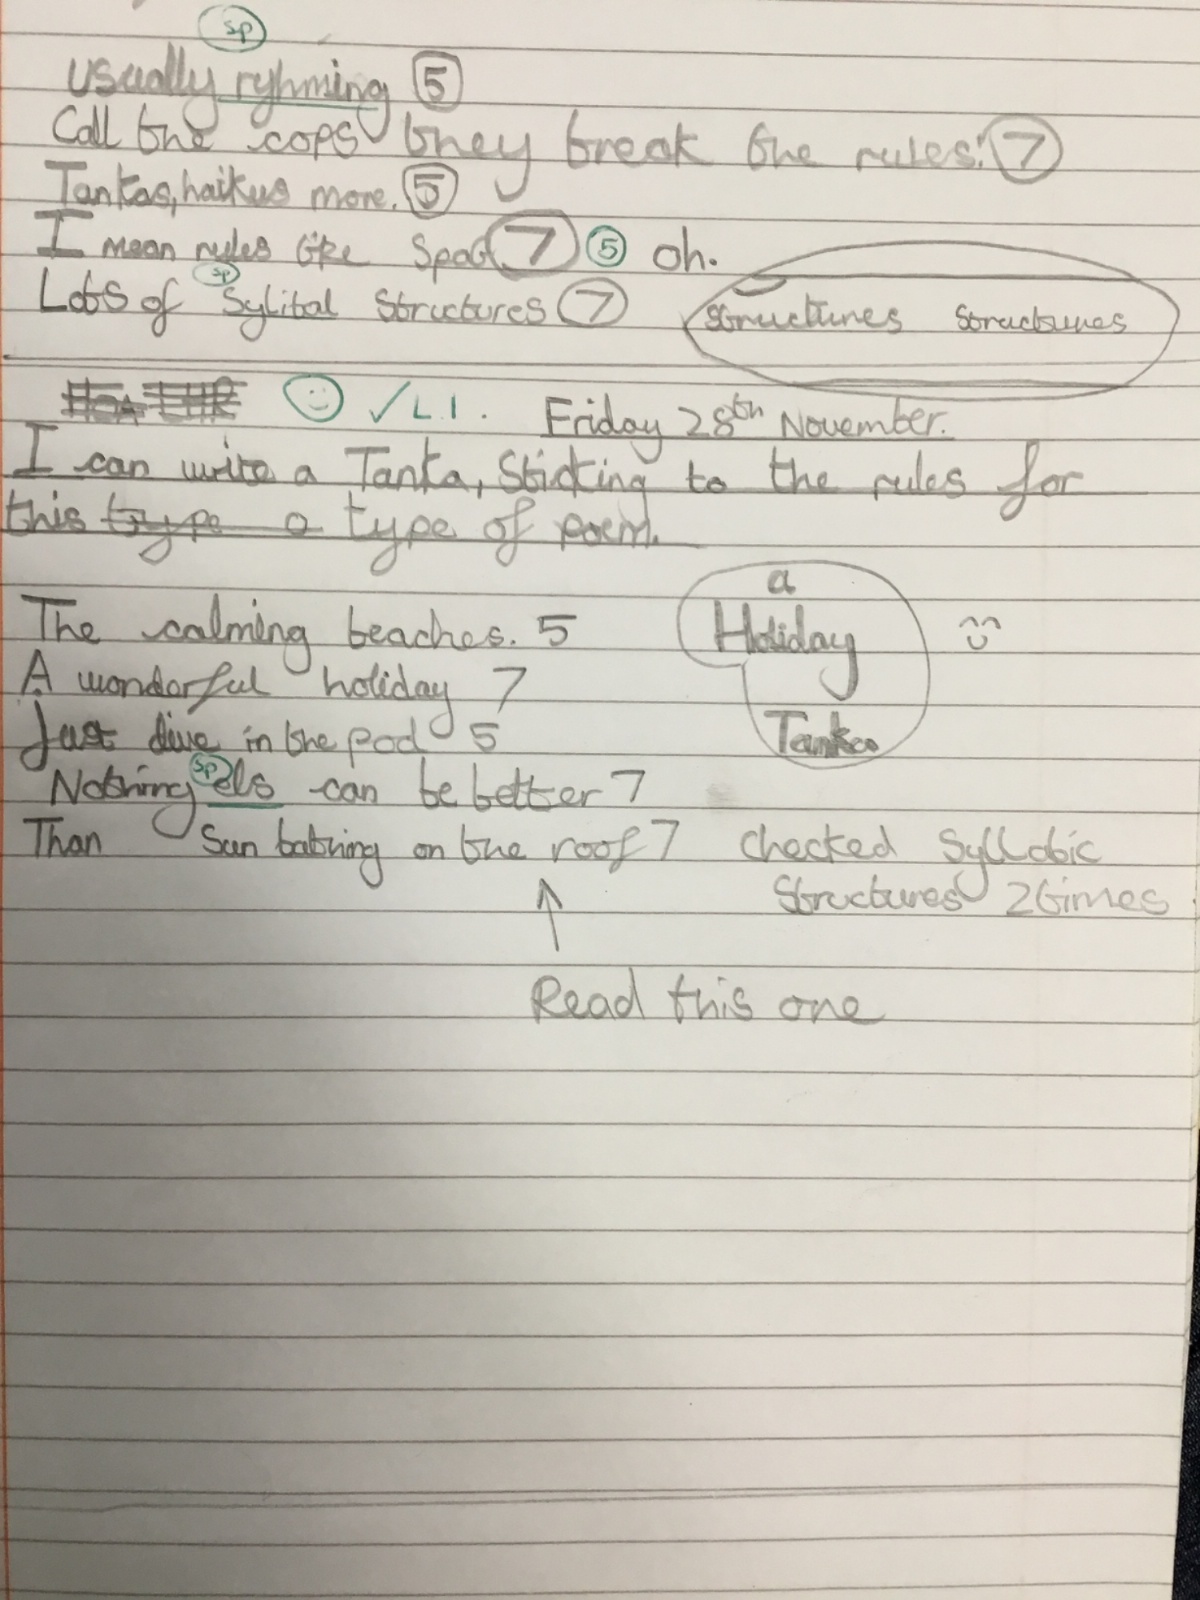 sp
Usually ryhming 5
Call the cops they break the rules. 7
Tankas, haikus more. 5
I mean rules like Spag. 7 5 oh.
sp
Lots of Sylibal Structures 7
structures structures
✓ L.I. Friday 28th November.
I can write a Tanka, Sticking to the rules for
this type o type of poem.
The calming beaches. 5
A wonderful holiday 7
Just dive in the pool 5
sp
Nothing els can be better 7
Than Sun bathing on the roof 7
a
Holiday
Tanka
checked Syllabic
Structures 2 times
Read this one